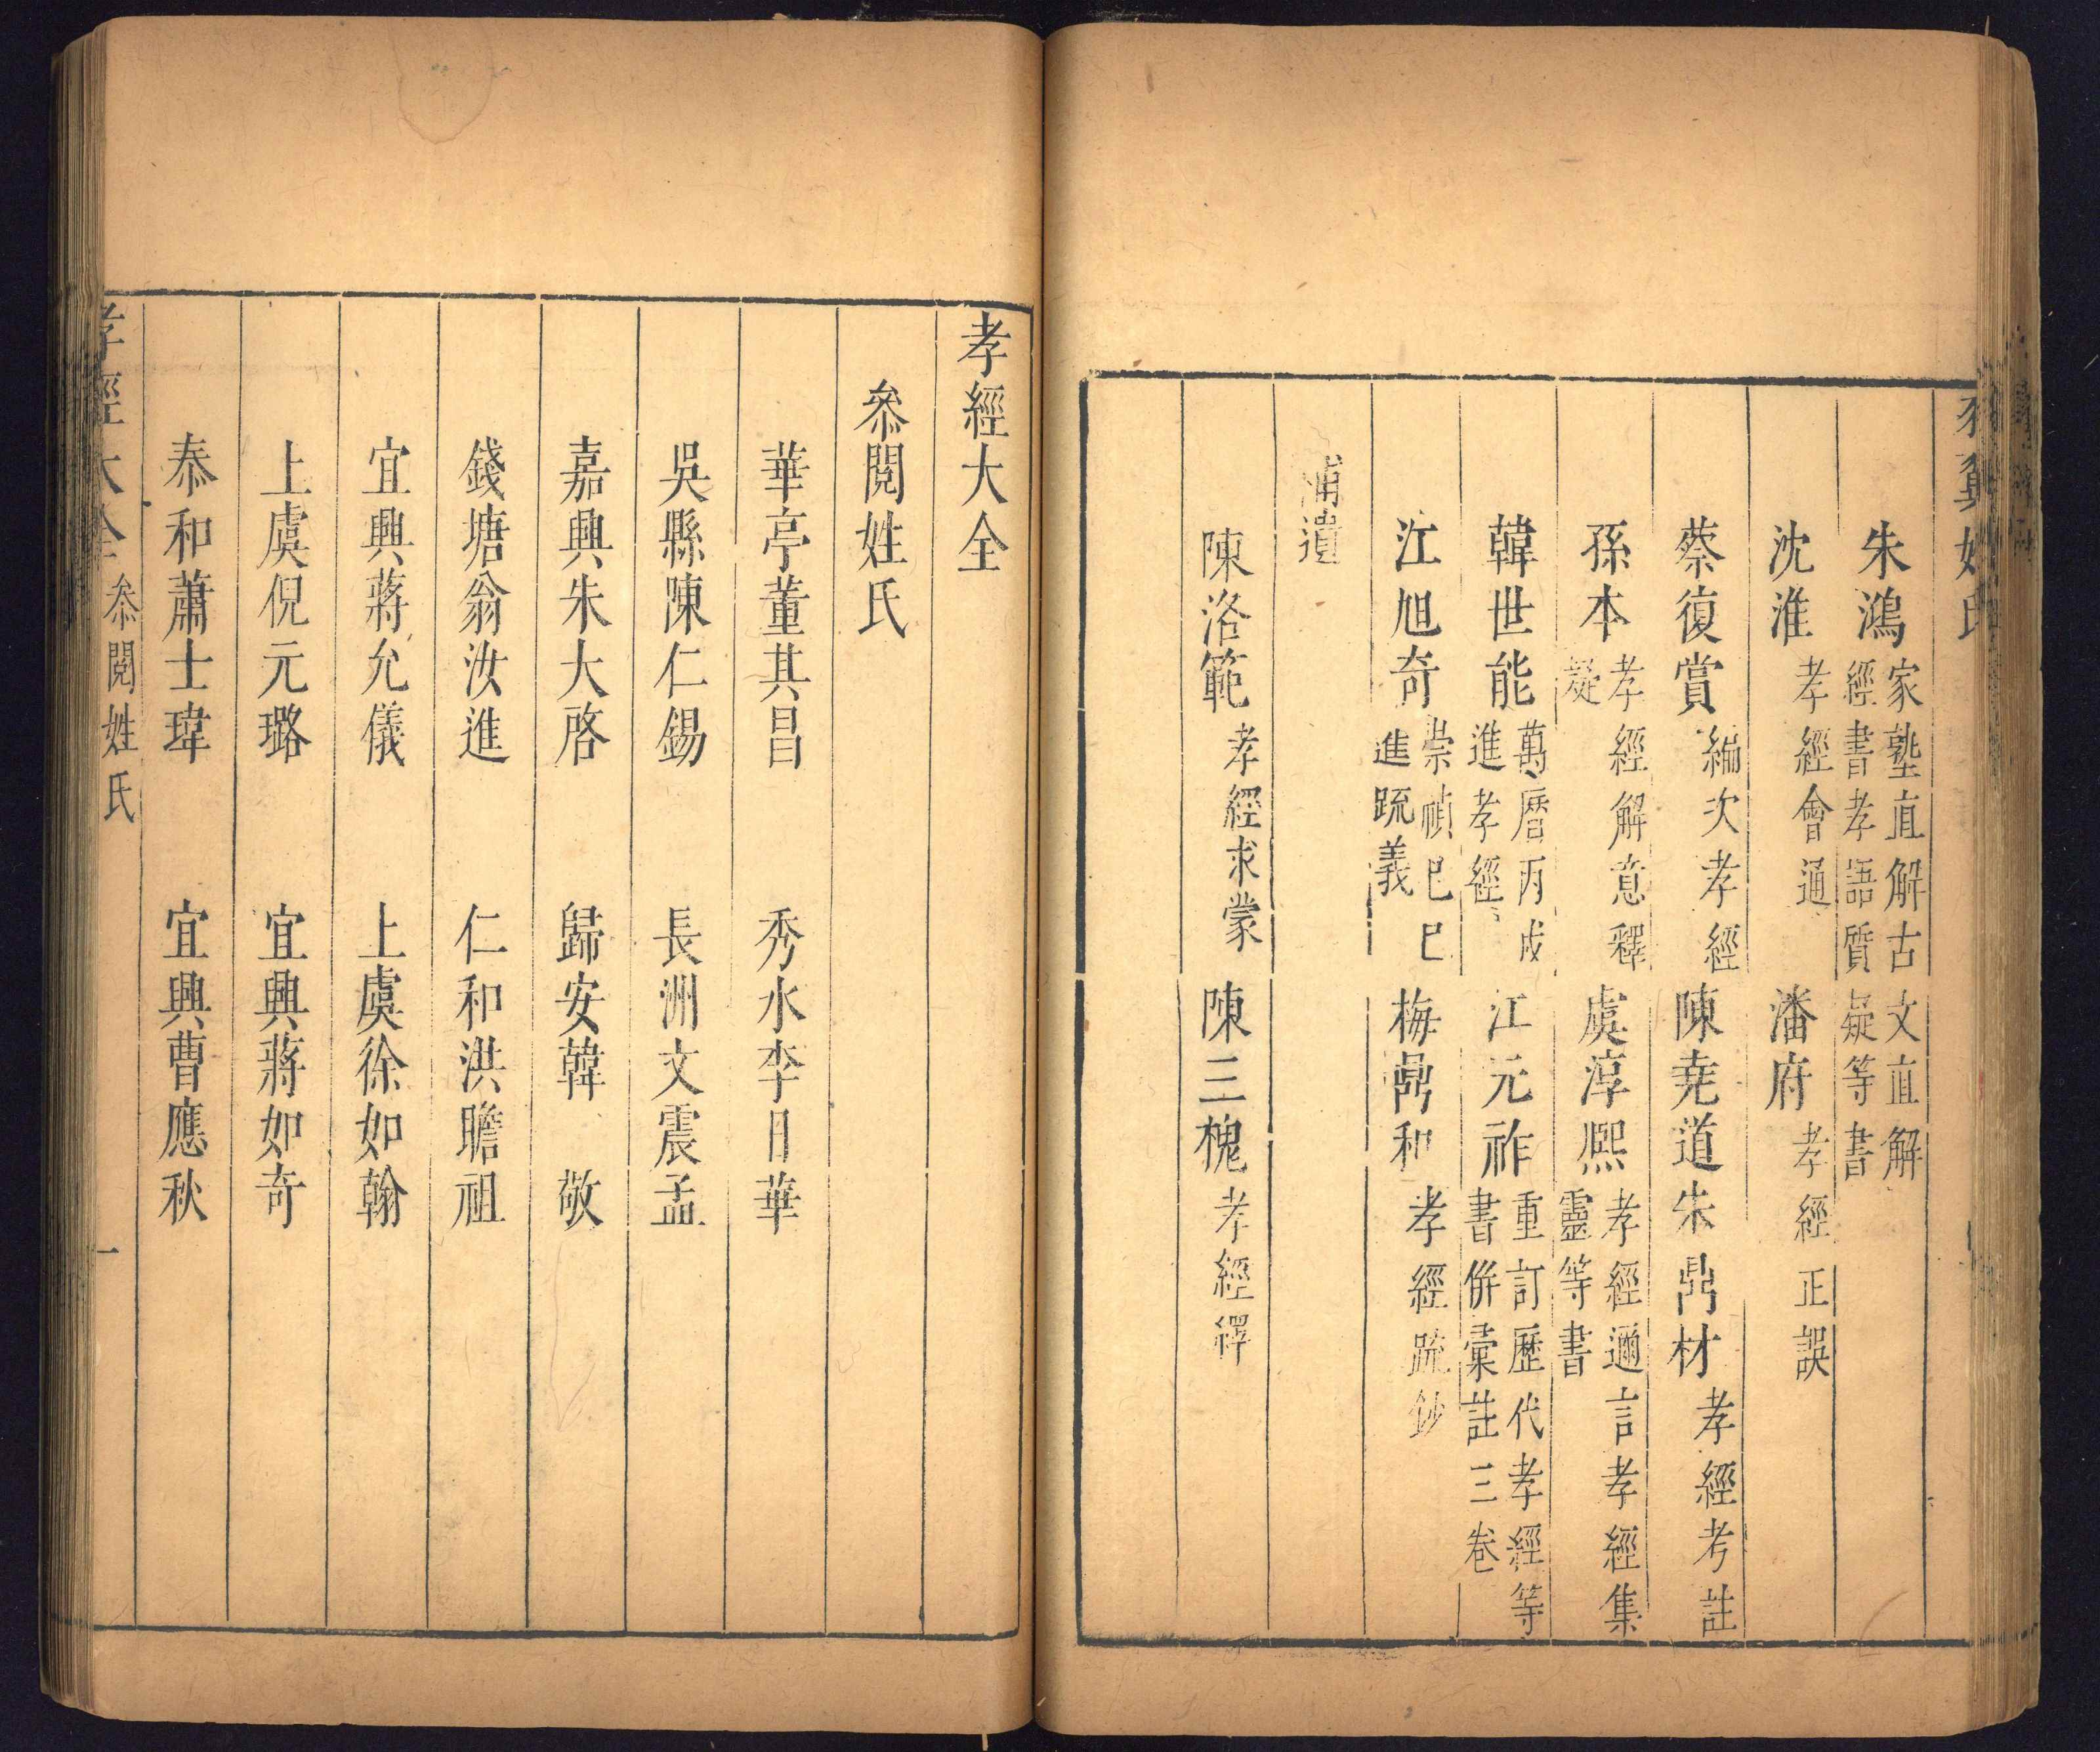 姓氏
朱鴻 家塾直解古文直解經書孝語質疑等書
沈淮 孝經會通 潘府 孝經正誤
蔡復賞 編次孝經 陳堯道 朱鼎材 孝經考註
孫本 孝經解意釋疑 虞淳熙 孝經邇言孝經集靈等書
韓世能 萬曆丙戌進孝經 江元祚 重訂歷代孝經等書併彙註三卷
江旭奇 崇禎己巳進疏義 梅鼎和 孝經疏鈔
補遺
陳洛範 孝經求蒙 陳三槐 孝經繹
孝經大全
叅閱姓氏
華亭董其昌 秀水李日華
吳縣陳仁錫 長洲文震孟
嘉興朱大啓 歸安韓 敬
錢塘翁汝進 仁和洪瞻祖
宜興蔣允儀 上虞徐如翰
上虞倪元璐 宜興蔣如奇
泰和蕭士瑋 宜興曹應秋
孝經大全 叅閱姓氏 一